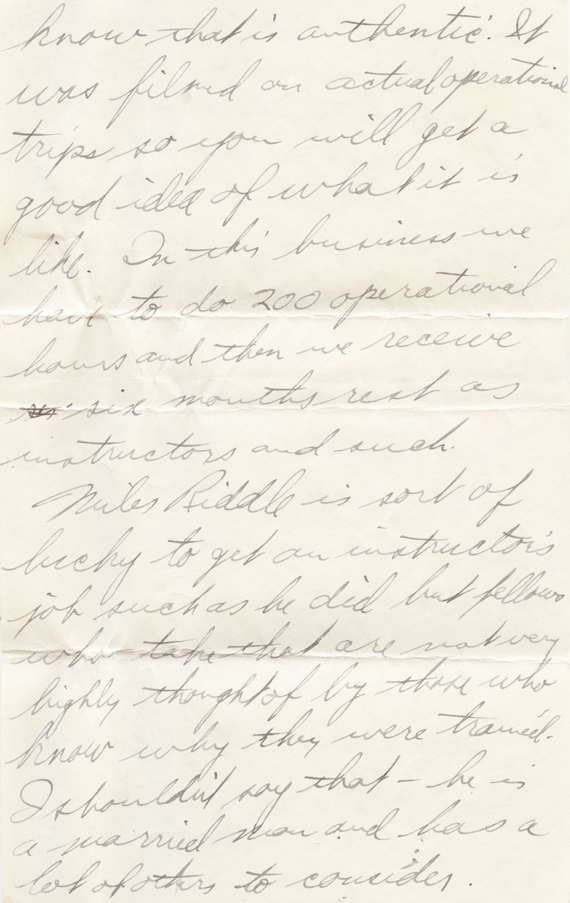 know that is authentic. It
was filmed on actual operational
trips so you will get a
good idea of what it is
like. In this business we
have to do 200 operational
hours and then we receive
six months rest as
instructors and such.
Miles Riddle is sort of
lucky to get an instructor's
job such as he did but fellows
who take that are not very
highly thought of by those who
know why they were trained.
I shouldn't say that – he is
a married man and has a
lot of others to consider.